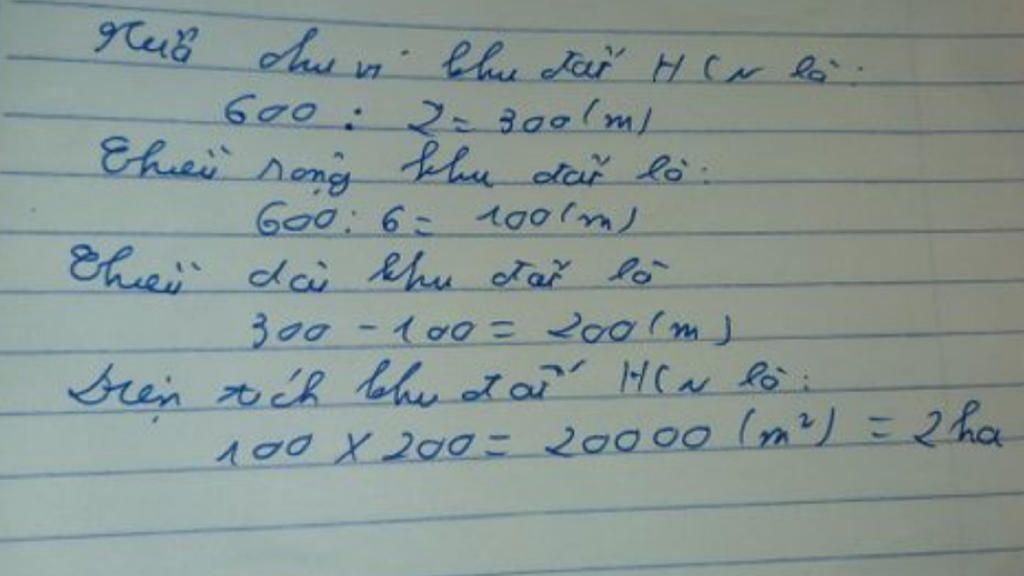 Nửa chu vi khu đất HCN là:
600 : 2 = 300 (m)
Chiều rộng khu đất là:
600 : 6 = 100 (m)
Chiều dài khu đất là
300 - 100 = 200 (m)
Diện tích khu đất HCN là:
100 X 200 = 20000 (m²) = 2ha